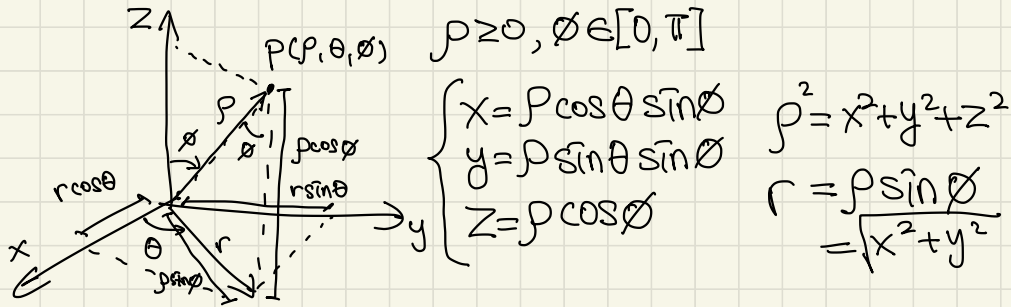 Z
P(ρ,θ,ø)
ρ
ø
ø
ρcosø
rcosθ
rsinθ
y
x
θ
r
ρsinø
ρ≥0, ø∈[0,π]
x=ρcosθsinø
y=ρsinθsinø
z=ρcosø
ρ²=x²+y²+z²
r=ρsinø
=√x²+y²